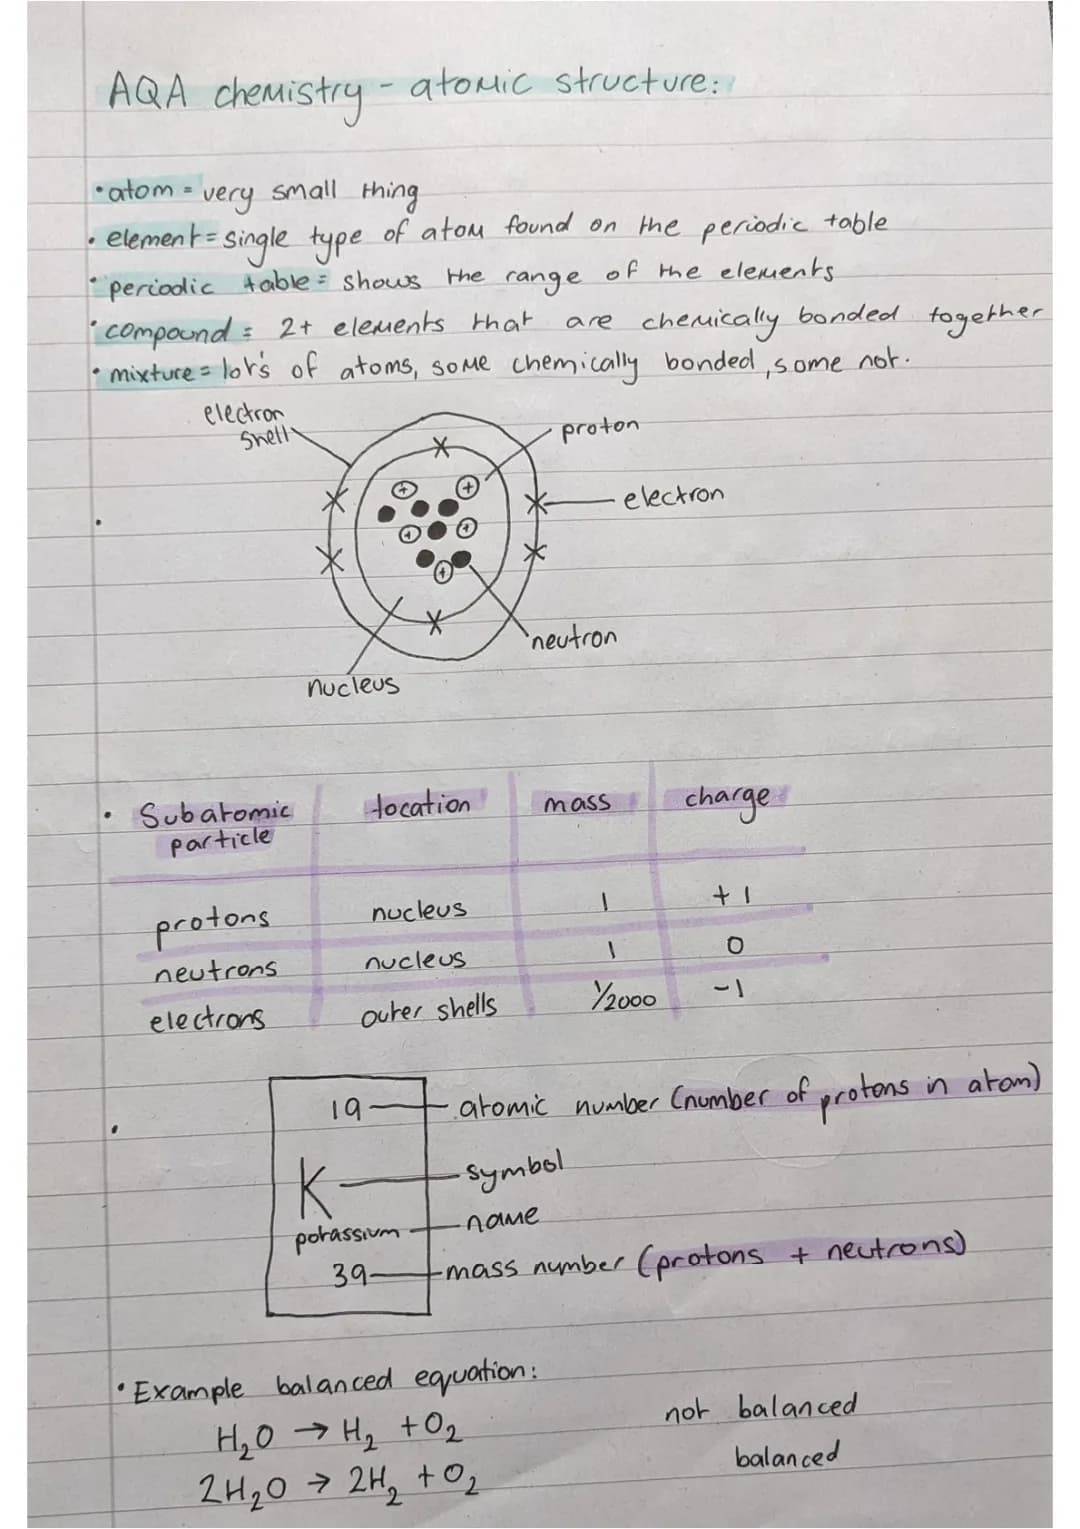 AQA chemistry - atomic structure:
• atom = very small thing
• element = single type of atom found on the periodic table
• periodic table = shows the range of the elements
• compound = 2+ elements that are chemically bonded together
• mixture = lot's of atoms, some chemically bonded, some not.
electron
shell
proton
electron
neutron
nucleus
• Subatomic particle location mass charge
protons nucleus 1 +1
neutrons nucleus 1 0
electrons outer shells 1/2000 -1
19 atomic number (number of protons in atom)
K symbol
potassium name
39 mass number (protons + neutrons)
• Example balanced equation:
H₂O → H₂ + O₂ not balanced
2H₂O → 2H₂ + O₂ balanced